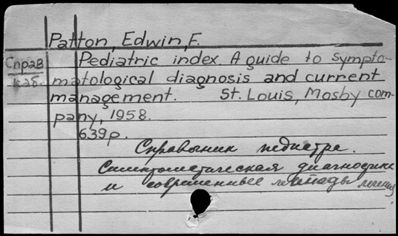 Patton, Edwin, F.
Справ Pediatric index. A guide to sympto-
каб. matological diagnosis and current
management. St. Louis, Mosby com-
pany, 1958.
639 p.
Справочник педиатра.
Симптоматическая диагностика
и современные методы лечения